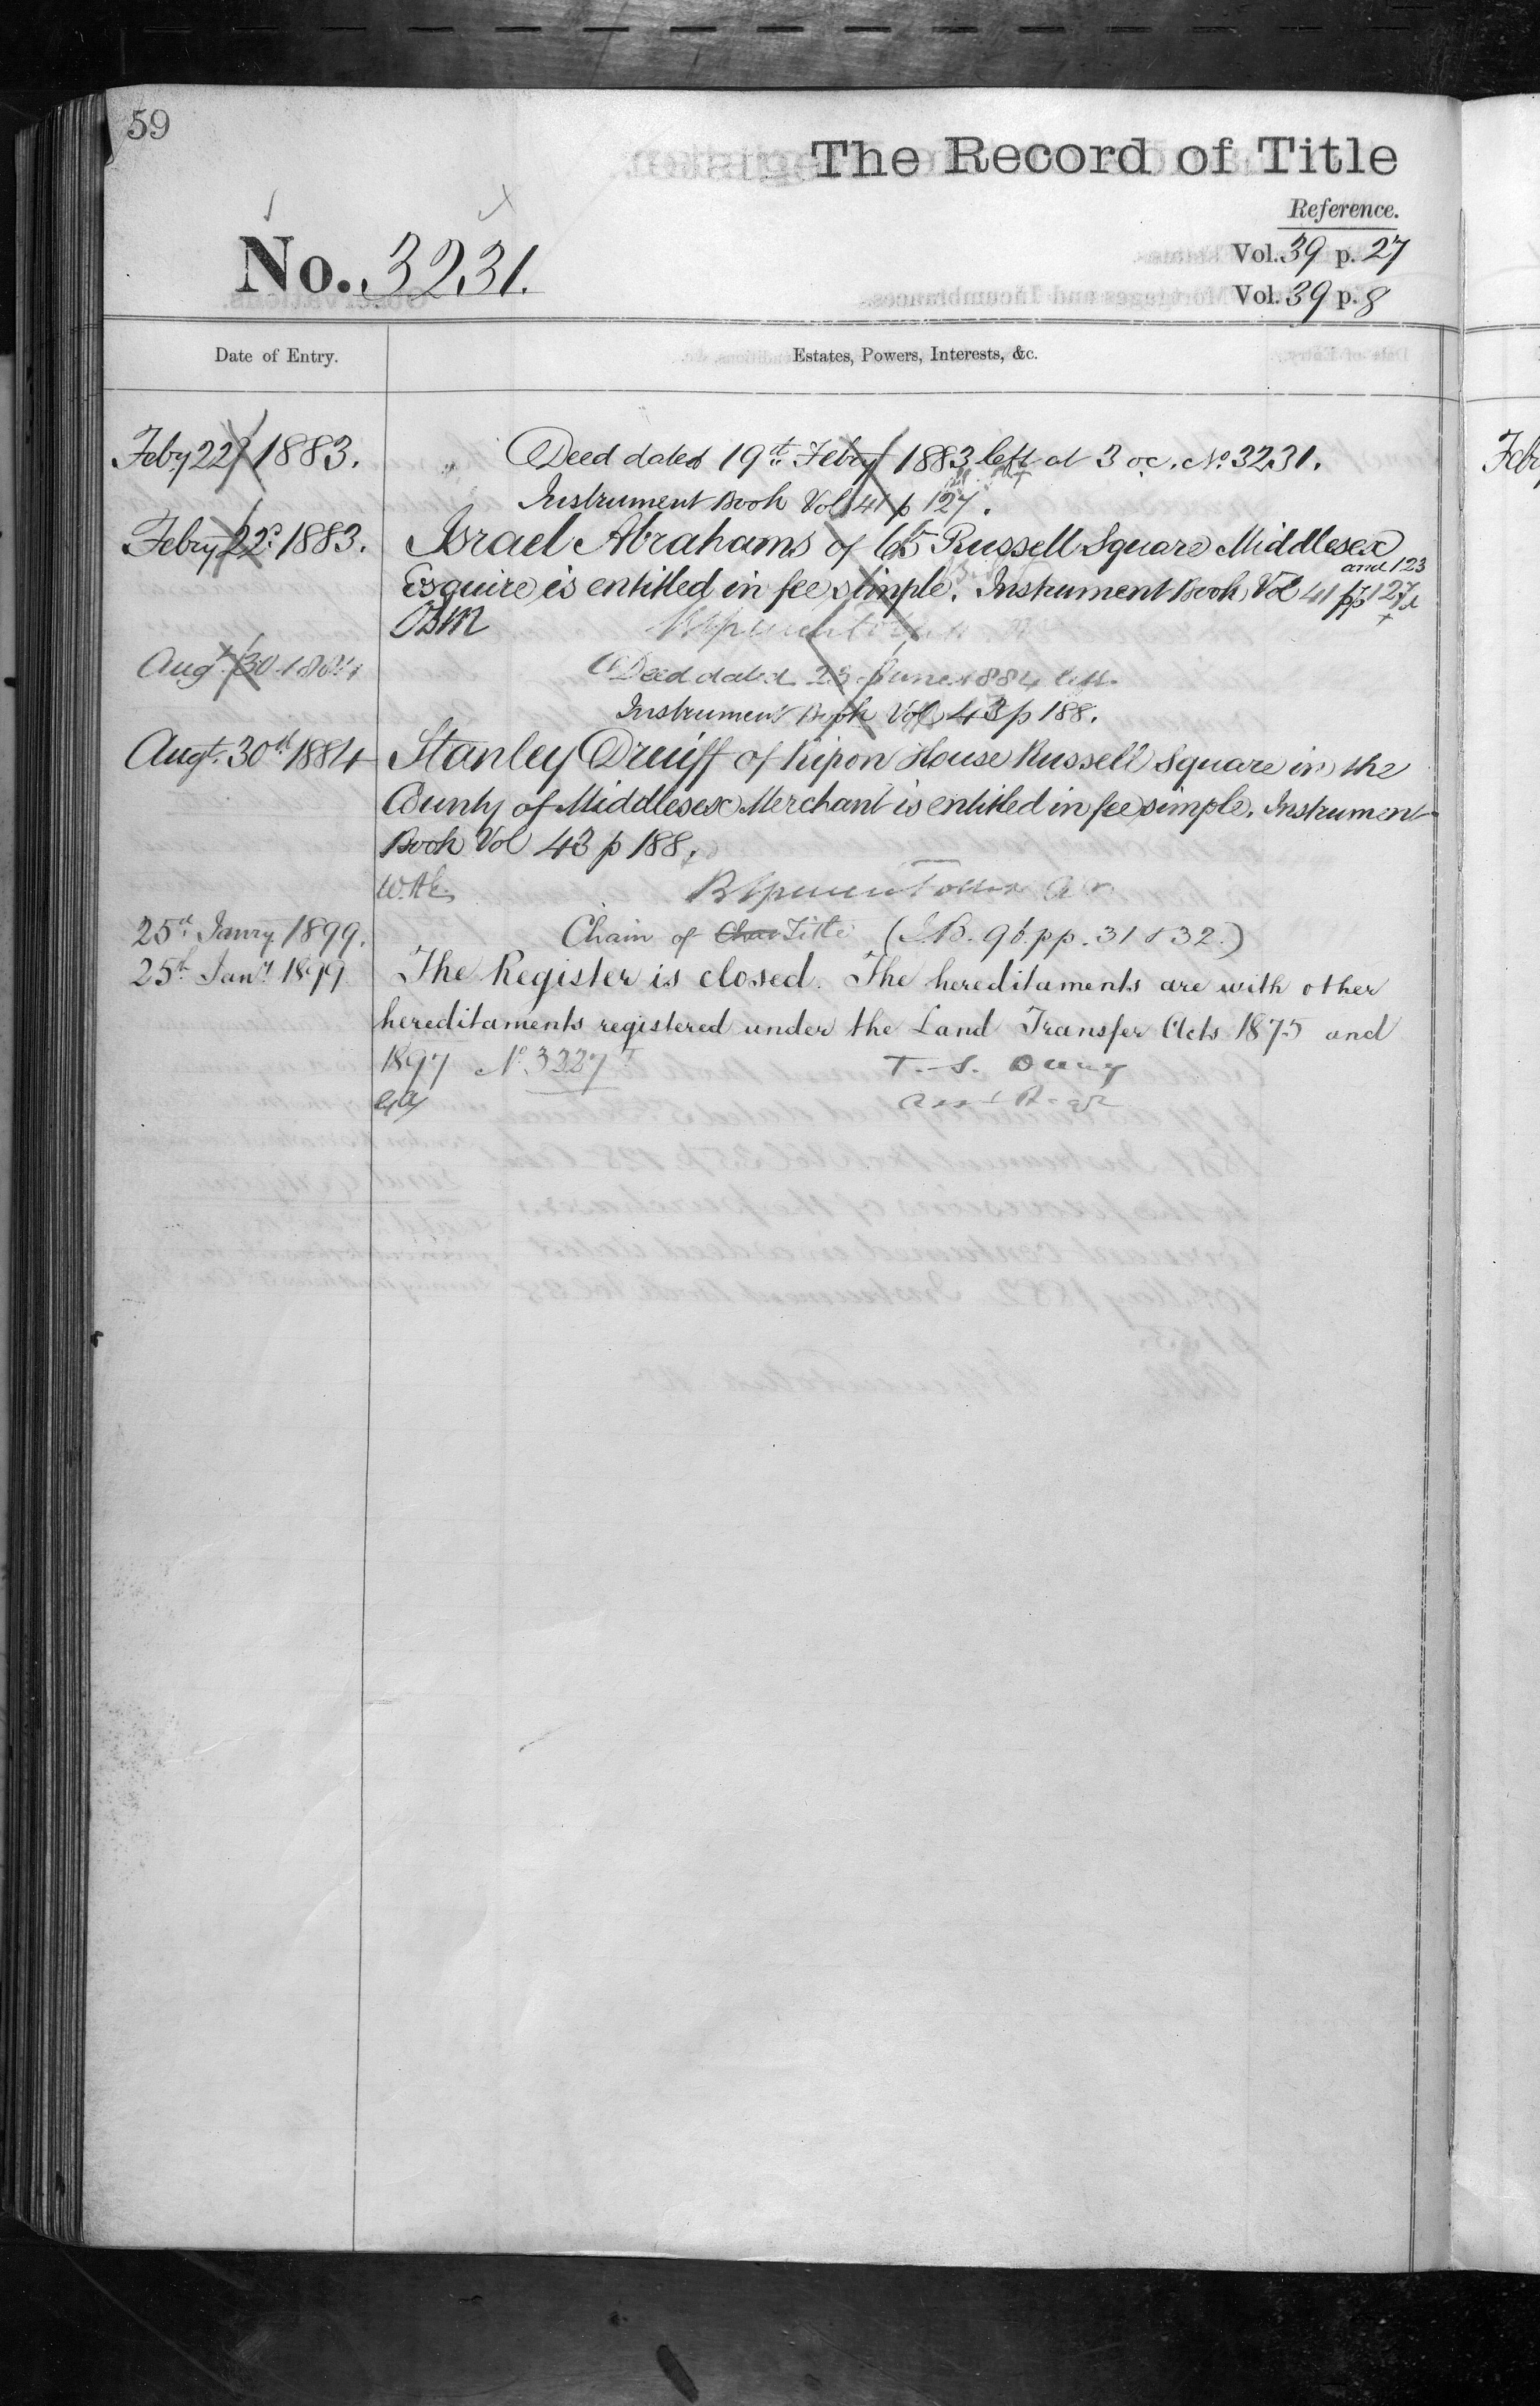 59
The Record of Title
Reference.
No. 3231.
Vol. 39 p. 27
Vol. 39 p. 8
Date of Entry.
Estates, Powers, Interests, &c.
Feby 22d 1883.
Deed dated 19th Febry 1883 left at 3 oc. No 3231.
Instrument Book Vol 41 p 127.
Febry 22d 1883.
Israel Abrahams of 65 Russell Square Middlesex
and 123
Esquire is entitled in fee simple. Instrument Book Vol 41 pp 127
Augt 30 1884
Deed dated 23 June 1884 left.
Instrument Book Vol 43 p 188.
Augt. 30th 1884
Stanley Druiff of Ripon House Russell Square in the
County of Middlesex Merchant is entitled in fee simple. Instrument
Book Vol 43 p 188.
25th Janry 1899.
Chain of Char Title (I.B. 96. pp. 31 & 32.)
25th Jany 1899
The Register is closed. The hereditaments are with other
hereditaments registered under the Land Transfer Acts 1875 and
1897 No. 3227
Feb